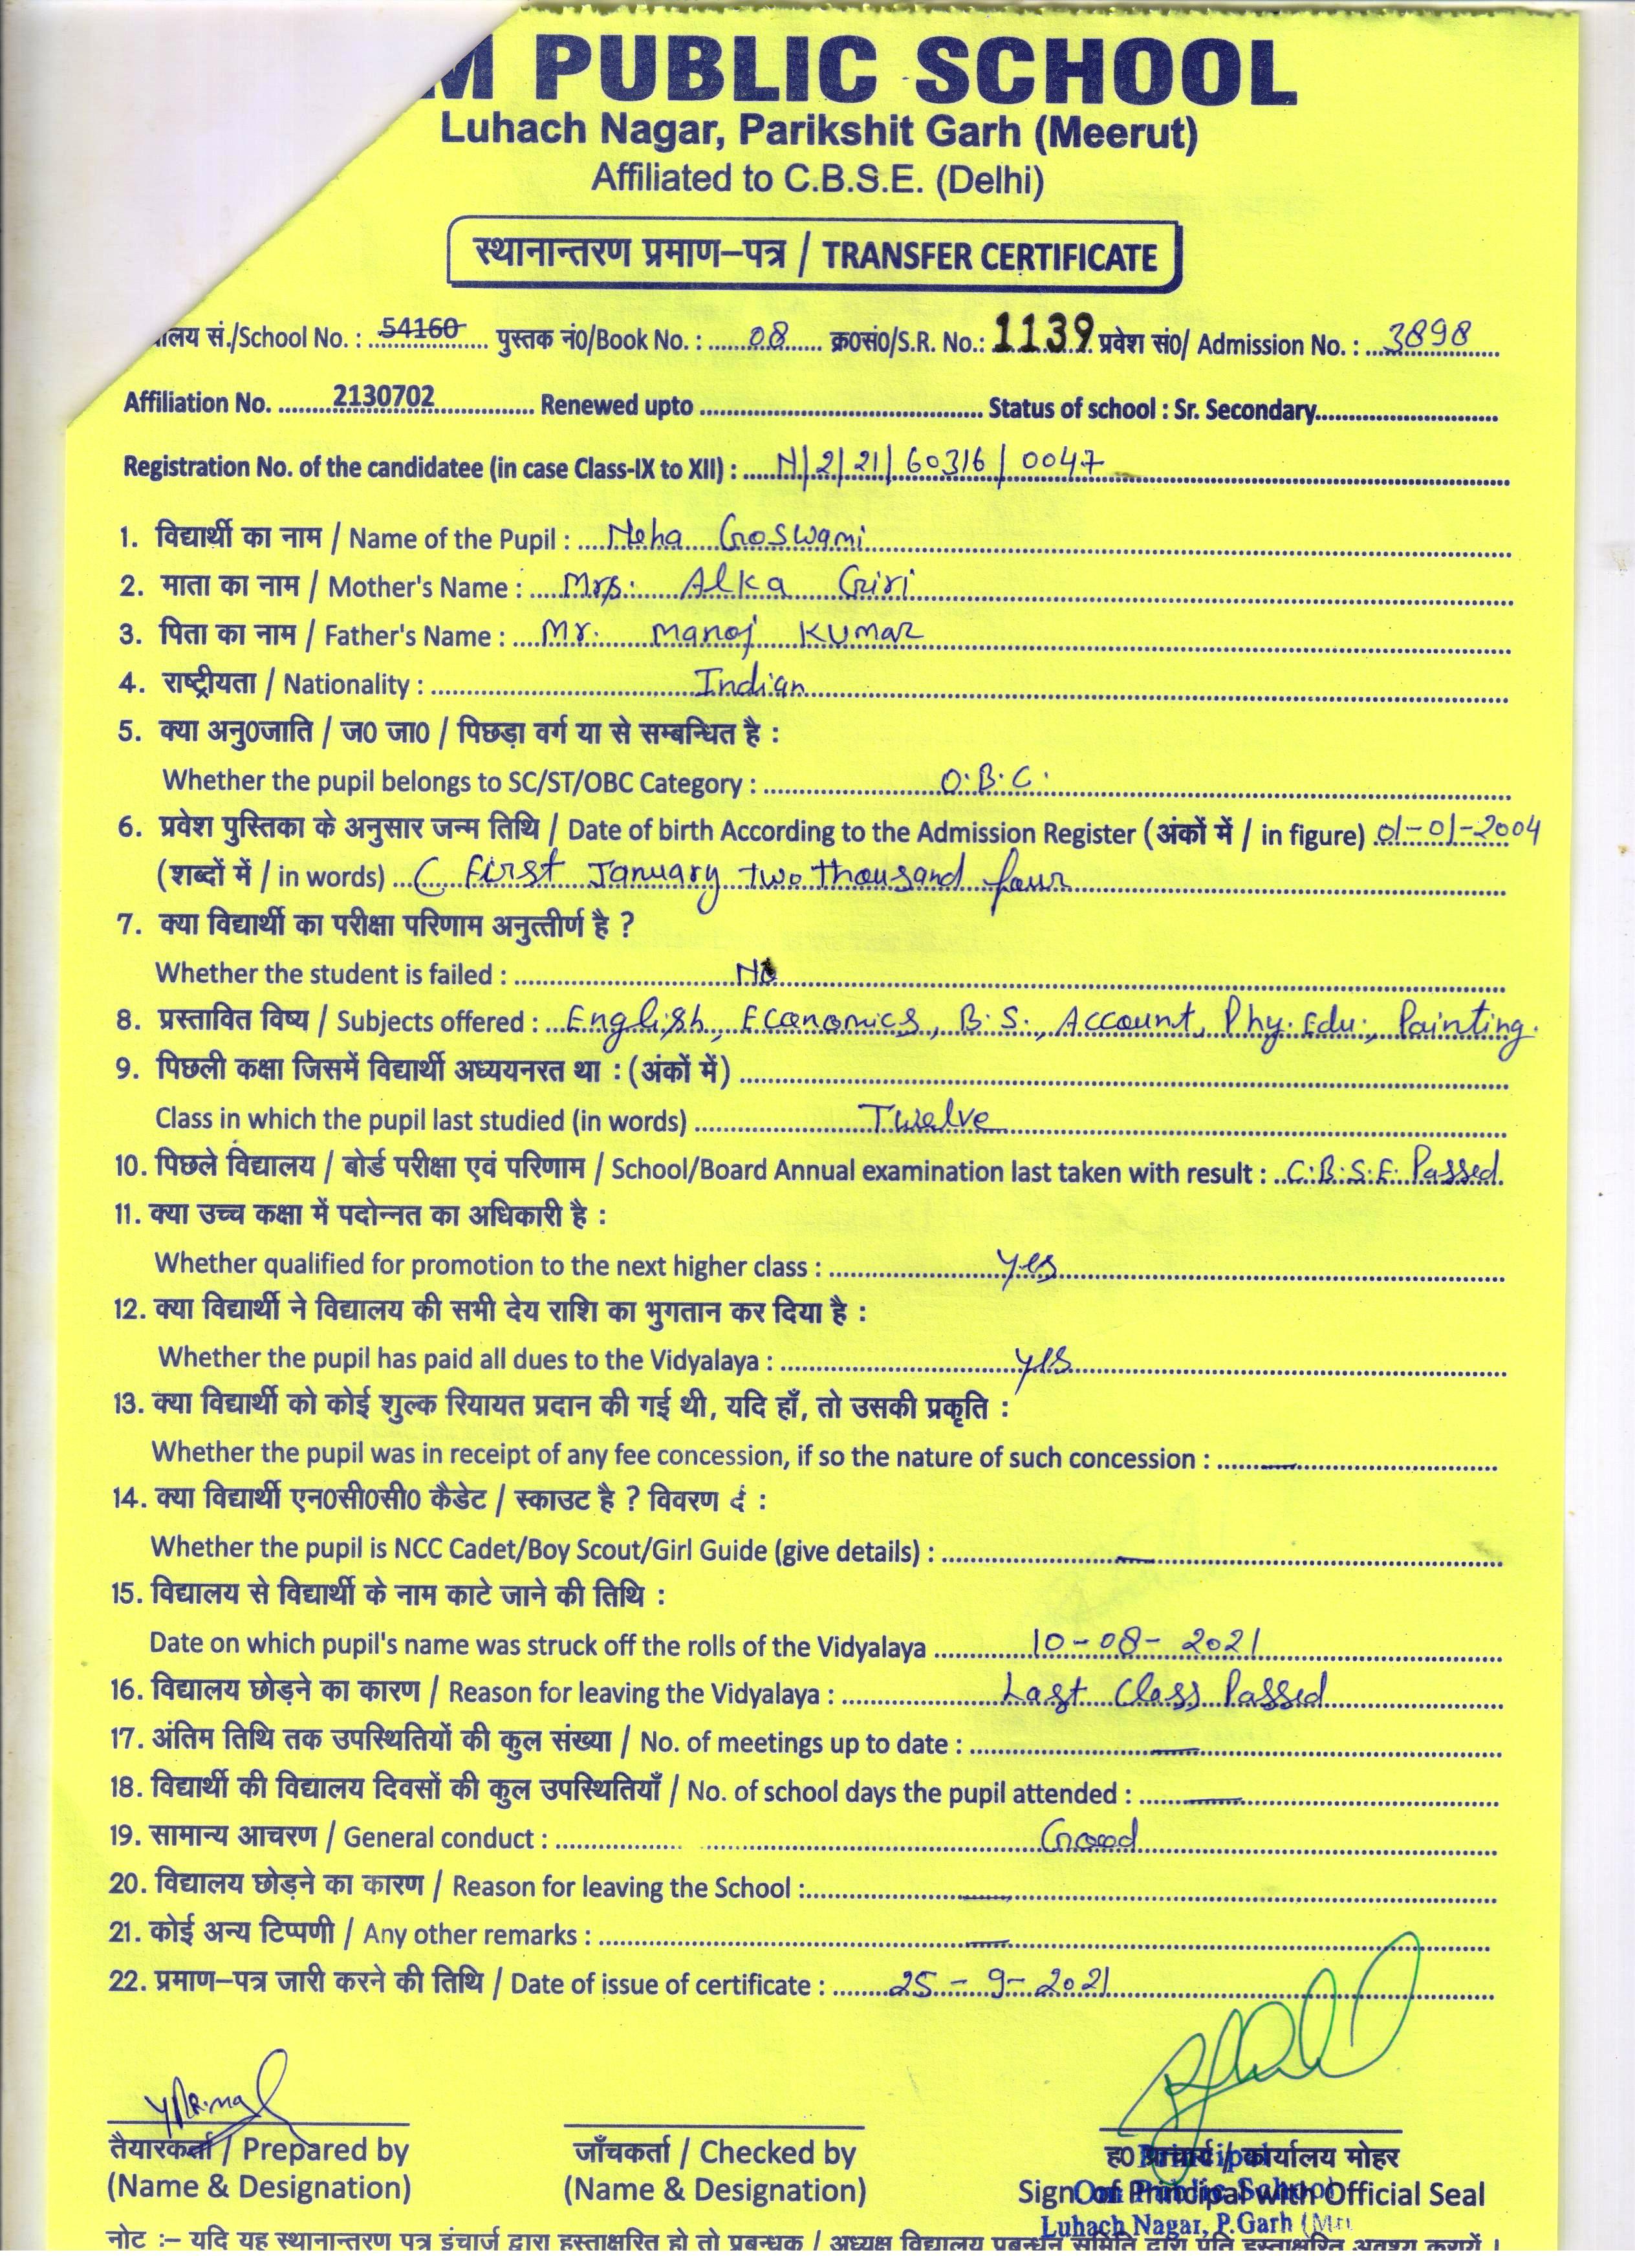 M PUBLIC SCHOOL
Luhach Nagar, Parikshit Garh (Meerut)
Affiliated to C.B.S.E. (Delhi)
स्थानान्तरण प्रमाण–पत्र / TRANSFER CERTIFICATE
ालय सं./School No. : 54160 पुस्तक नं0/Book No. : 08 क्र0सं0/S.R. No.: 1139 प्रवेश सं0/ Admission No. : 3898
Affiliation No. 2130702 Renewed upto Status of school : Sr. Secondary
Registration No. of the candidatee (in case Class-IX to XII) : N/2/21/60316/0047
1. विद्यार्थी का नाम / Name of the Pupil : Neha Goswami
2. माता का नाम / Mother's Name : Mrs. Alka Giri
3. पिता का नाम / Father's Name : Mr. Manoj Kumar
4. राष्ट्रीयता / Nationality : Indian
5. क्या अनु0जाति / ज0 जा0 / पिछड़ा वर्ग या से सम्बन्धित है :
Whether the pupil belongs to SC/ST/OBC Category : O.B.C.
6. प्रवेश पुस्तिका के अनुसार जन्म तिथि / Date of birth According to the Admission Register (अंकों में / in figure) 01-01-2004
(शब्दों में / in words) ( First January two thousand four
7. क्या विद्यार्थी का परीक्षा परिणाम अनुत्तीर्ण है ?
Whether the student is failed : No
8. प्रस्तावित विष्य / Subjects offered : English, Economics, B.S., Account, Phy. Edu., Painting.
9. पिछली कक्षा जिसमें विद्यार्थी अध्ययनरत था : (अंकों में)
Class in which the pupil last studied (in words) Twelve
10. पिछले विद्यालय / बोर्ड परीक्षा एवं परिणाम / School/Board Annual examination last taken with result : C.B.S.E. Passed
11. क्या उच्च कक्षा में पदोन्नत का अधिकारी है :
Whether qualified for promotion to the next higher class : Yes
12. क्या विद्यार्थी ने विद्यालय की सभी देय राशि का भुगतान कर दिया है :
Whether the pupil has paid all dues to the Vidyalaya : Yes
13. क्या विद्यार्थी को कोई शुल्क रियायत प्रदान की गई थी, यदि हाँ, तो उसकी प्रकृति :
Whether the pupil was in receipt of any fee concession, if so the nature of such concession : —
14. क्या विद्यार्थी एन0सी0सी0 कैडेट / स्काउट है ? विवरण दं :
Whether the pupil is NCC Cadet/Boy Scout/Girl Guide (give details) : —
15. विद्यालय से विद्यार्थी के नाम काटे जाने की तिथि :
Date on which pupil's name was struck off the rolls of the Vidyalaya 10-08-2021
16. विद्यालय छोड़ने का कारण / Reason for leaving the Vidyalaya : Last Class Passed
17. अंतिम तिथि तक उपस्थितियों की कुल संख्या / No. of meetings up to date : —
18. विद्यार्थी की विद्यालय दिवसों की कुल उपस्थितियाँ / No. of school days the pupil attended : —
19. सामान्य आचरण / General conduct : Good
20. विद्यालय छोड़ने का कारण / Reason for leaving the School : —
21. कोई अन्य टिप्पणी / Any other remarks : —
22. प्रमाण–पत्र जारी करने की तिथि / Date of issue of certificate : 25-9-2021
तैयारकर्ता / Prepared by जाँचकर्ता / Checked by ह0 प्राचार्य / कार्यालय मोहर
Principal
(Name & Designation) (Name & Designation) Sign of Principal with Official Seal
Om Public School
Luhach Nagar, P.Garh (Mrt
नोट :– यदि यह स्थानान्तरण पत्र इंचार्ज द्वारा हस्ताक्षरित हो तो प्रबन्धक / अध्यक्ष विद्यालय प्रबन्धन समिति द्वारा प्रति हस्ताक्षरित अवश्य करायें ।